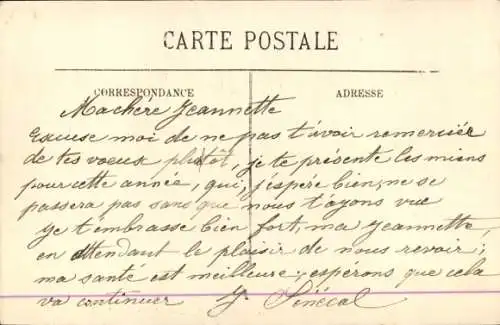 CARTE POSTALE
CORRESPONDANCE
ADRESSE
Ma chére Jeannette
Excuse moi de ne pas t'avoir remerciér
de tes voeux plutôt, je te présente les miens
pour cette année, qui, j'espére bien, ne se
passera pas sans que nous t'ayons vue
Je t'embrasse bien fort, ma Jeannette,
en attendant le plaisir de nous revoir;
ma santé est meilleure; esperons que cela
va continuer Y. Sénécal